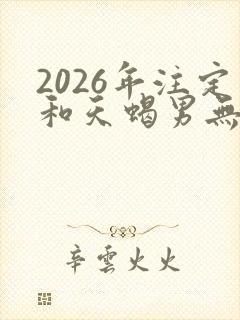 2026年注定
和天蝎男無
辛雲火火